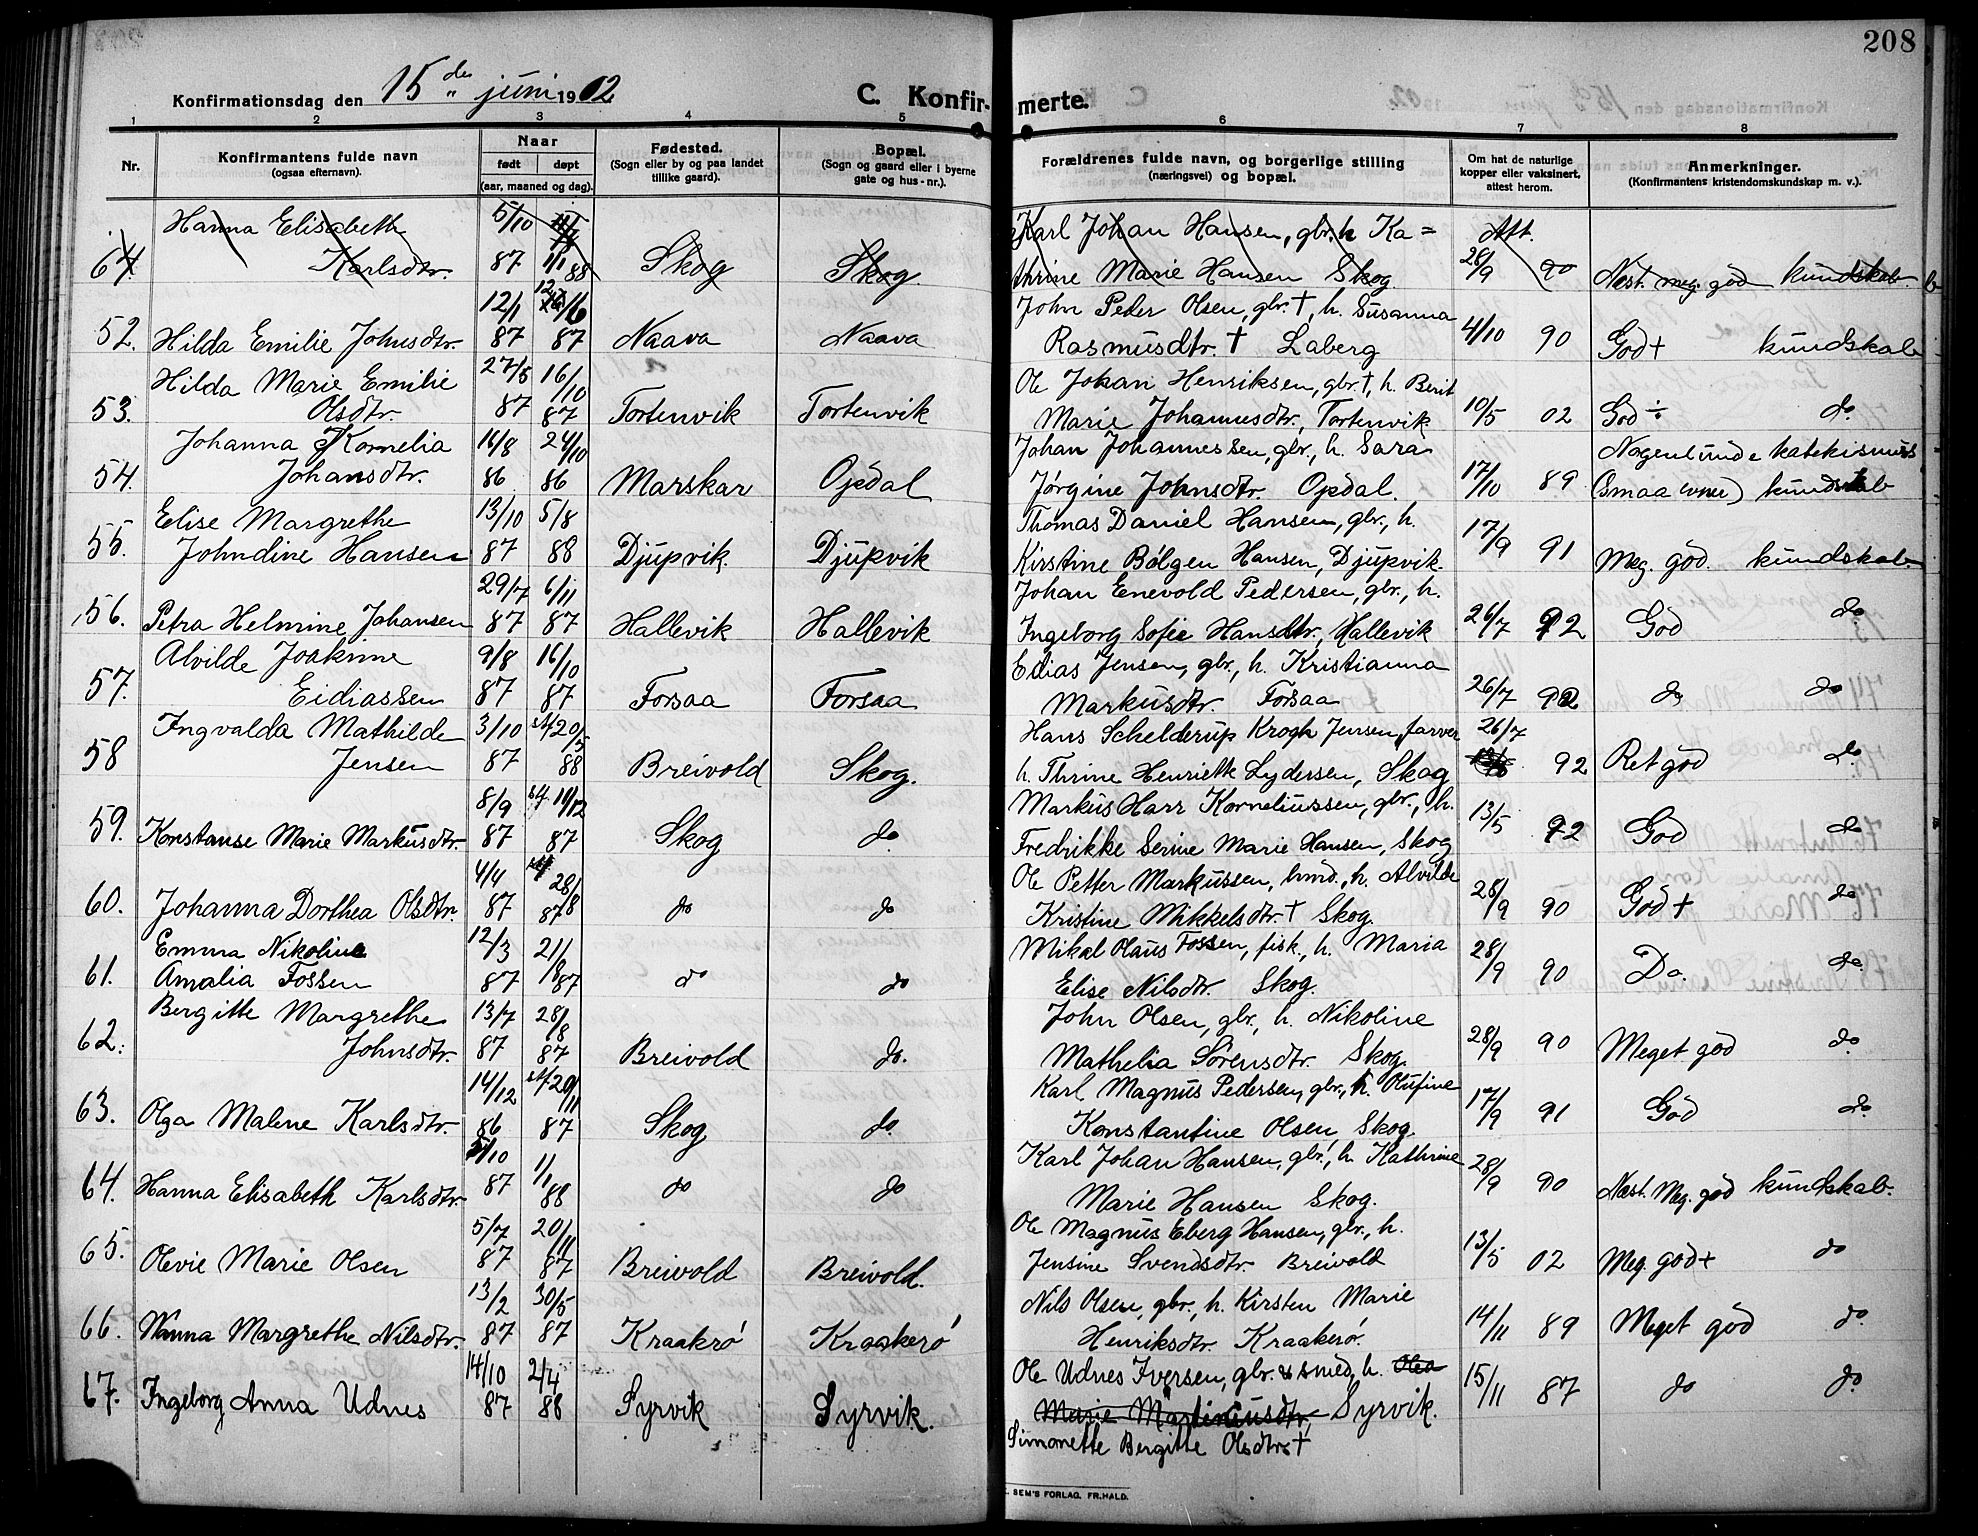 208
Konfirmationsdag den 15de juni 1902
C. Konfir- merte.
1 2 3 4 5 6 7 8
Nr.
Konfirmantens fulde navn
(ogsaa efternavn).
Naar
født døpt
(aar, maaned og dag).
Fødested.
(Sogn eller by og paa landet
tillike gaard).
Bopæl.
(Sogn og gaard eller i byerne
gate og hus-nr.).
Forældrenes fulde navn, og borgerlige stilling
(næringsvei) og bopæl.
Om hat de naturlige
kopper eller vaksinert,
attest herom.
Anmerkninger.
(Konfirmantens kristendomskundskap m. v.).
Hanna Elisabeth 5/10 Karl Johan Hansen, gbr, h Ka= Att.
64. Karlsdtr. 87 1/1 88 Skog Skog. thrine Marie Hansen Skog 28/9 90 Næst. meg. god kundskab.
12/1 12/6 John Peder Olsen, gbr. †, h. Susanna
52. Hilda Emilie Johnsdtr. 87 87 Naava Naava Rasmusdtr. † Laberg 4/10 90 God + kundskab
Hilda Marie Emilie 27/5 16/10 Ole Johan Henriksen, gbr. †, h. Berit
53. Olsdtr. 87 87 Tortenvik Tortenvik Marie Johannesdtr., Tortenvik 10/5 02 God ÷ do
Johanna Kornelia 14/8 24/10 Johan Johannessen, gbr., h. Sara Nogenlunde katekismus
54. Johansdtr. 86 86 Marskar Opdal Jørgine Johnsdtr. Opdal. 17/10 89 (smaa evner) kundskab
Elise Margrethe 13/10 5/8 Thomas Daniel Hansen, gbr., h.
55. Johndine Hansen 87 88 Djupvik. Djupvik Kirstine Bølgen Hansen, Djupvik. 17/9 91 Meg. god. kundskab
29/7 6/11 Johan Enevold Pedersen, gbr., h.
56. Petra Helmine Johansen 87 87 Hallevik Hallevik Ingeborg Sofie Hansdtr., Hallevik 26/7 92 God do
Alvilde Joakime 9/8 16/10 Edias Jensen, gbr., h. Kristianna
57. Eidiassen 87 87 Forsaa Forsaa Markusdtr. Forsaa 26/7 92 do do
Ingvalda Mathilde 3/10 20/5 Hans Schelderup Krogh Jensen, farver 26/7
58 Jensen 87 88 Breivold Skog. h. Thrine Henriette Lydersen, Skog 92 Ret god do
8/9 19/12 Markus Harr Korneliussen, gbr., h.
59. Konstanse Marie Markusdtr. 87 87 Skog do. Fredrikke Serine Marie Hansen, Skog 13/5 92 God do
4/4 28/8 Ole Petter Markussen, hmd., h. Alvilde
60. Johanna Dorthea Olsdtr. 87 87 do do Kristine Mikkelsdtr. † Skog. 28/9 90 God + do
Emma Nikoline 12/3 21/8 Mikal Olaus Fossen, fisk., h. Maria
61. Amalia Fossen 87 87 do do Elise Nilsdtr. Skog. 28/9 90 Do. do.
Bergitte Margrethe 13/7 28/8 John Olsen, gbr., h. Nikoline
62. Johnsdtr. 87 87 Breivold do. Mathelia Sørensdtr. Skog. 28/9 90 Meget god do.
14/12 20/11 Karl Magnus Pedersen, gbr., h. Olufine
63. Olga Malene Karlsdtr. 86 87 Skog do. Konstantine Olsen Skog. 17/9 91 God do.
5/10 1/1 Karl Johan Hansen, gbr., h. Kathrine
64. Hanna Elisabeth Karlsdtr. 87 88 do do Marie Hansen Skog. 28/9 90 Næst. Meg. god kundskab.
5/7 20/11 Ole Magnus Eberg Hansen, gbr., h.
65. Olevie Marie Olsen 87 87 Breivold Breivold. Jensine Svendsdtr. Breivold 13/5 02 Meg. god + do
13/2 30/5 Nils Olsen, gbr., h. Kirsten Marie
66. Nanna Margrethe Nilsdtr. 87 87 Kraakrø Kraakerø Henriksdtr. Kraakerø. 14/11 89 Meget god do.
14/10 2/4 Ole Udnes Iversen, gbr. & smed, h. Olea
67. Ingeborg Anna Udnes 87 88 Syrvik Syrvik. Marie Martinusdtr, Syrvik. 15/11 87 do do.
Simonette Bergitte Olsdtr †
SEM'S FORLAG, FR.HALD.